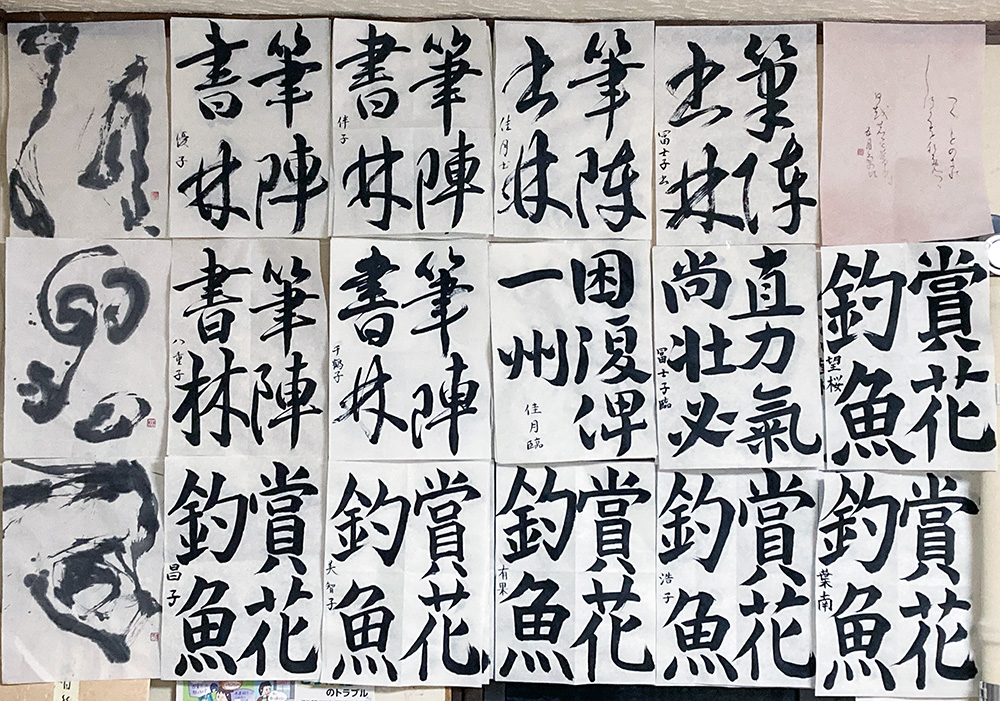 筆陣
書林
優子
筆陣
書林
伴子
筆陣
書林
佳月書
筆陣
書林
冨士子書
筆陣
書林
八重子
筆陣
書林
千鶴子
困復俾
一州
佳月臨
直力氣
尚壮必
冨士子臨
賞花
釣魚
望桜
賞花
釣魚
昌子
賞花
釣魚
美智子
賞花
釣魚
有果
賞花
釣魚
浩子
賞花
釣魚
葉南
のトラブル